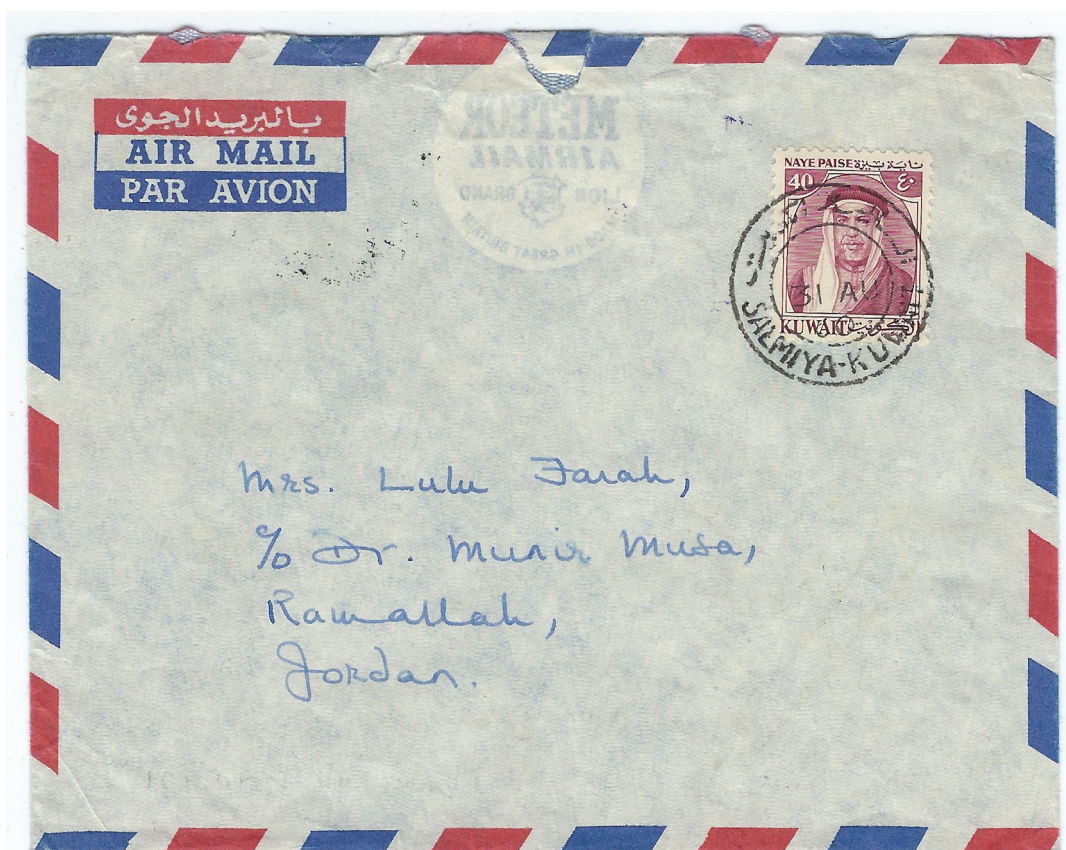 بالبريد الجوى
AIR MAIL
PAR AVION
METEOR
AIRMAIL
LION BRAND
MADE IN GREAT BRITAIN
NAYE PAISE نايه بيزة
40 ٤٠
KUWAIT الكويت
31 AU
SALMIYA-KUWAIT
Mrs. Lulu Farah,
c/o Dr. Munir Musa,
Ramallah,
Jordan.